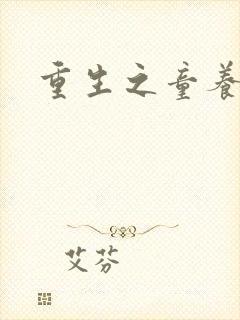 重生之童养
艾芬